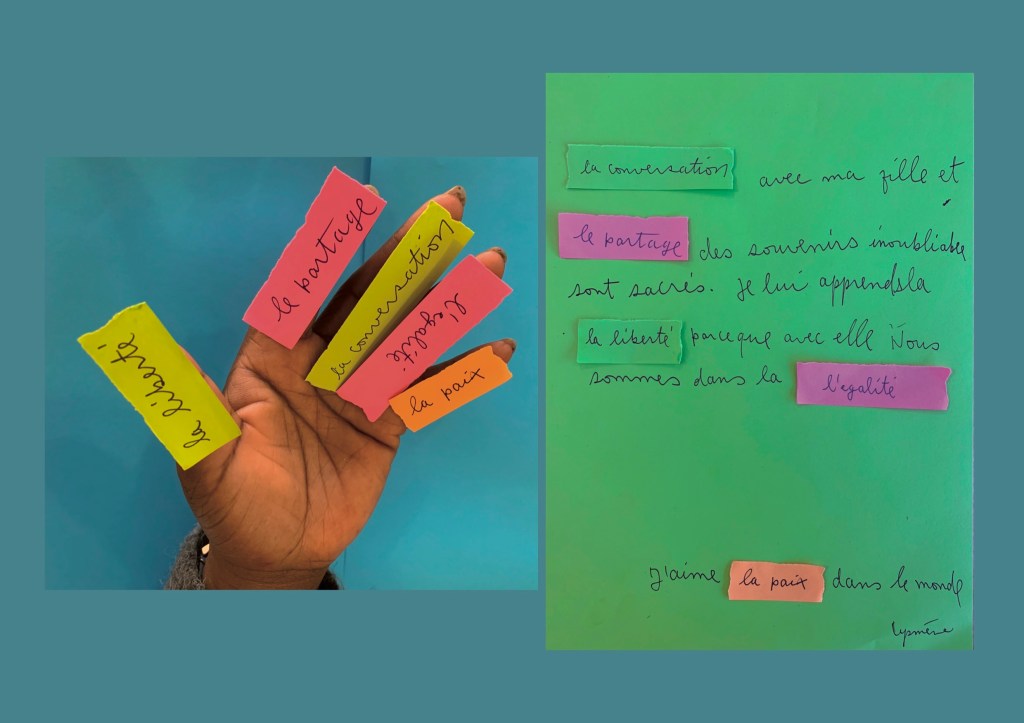 la liberté
le partage
la conversation
l'egalité
la paix
la conversation avec ma fille et
le partage des souvenirs inoubliable
sont sacrés. Je lui apprends la
la liberté parceque avec elle Nous
sommes dans la l'egalité
J'aime la paix dans le monde